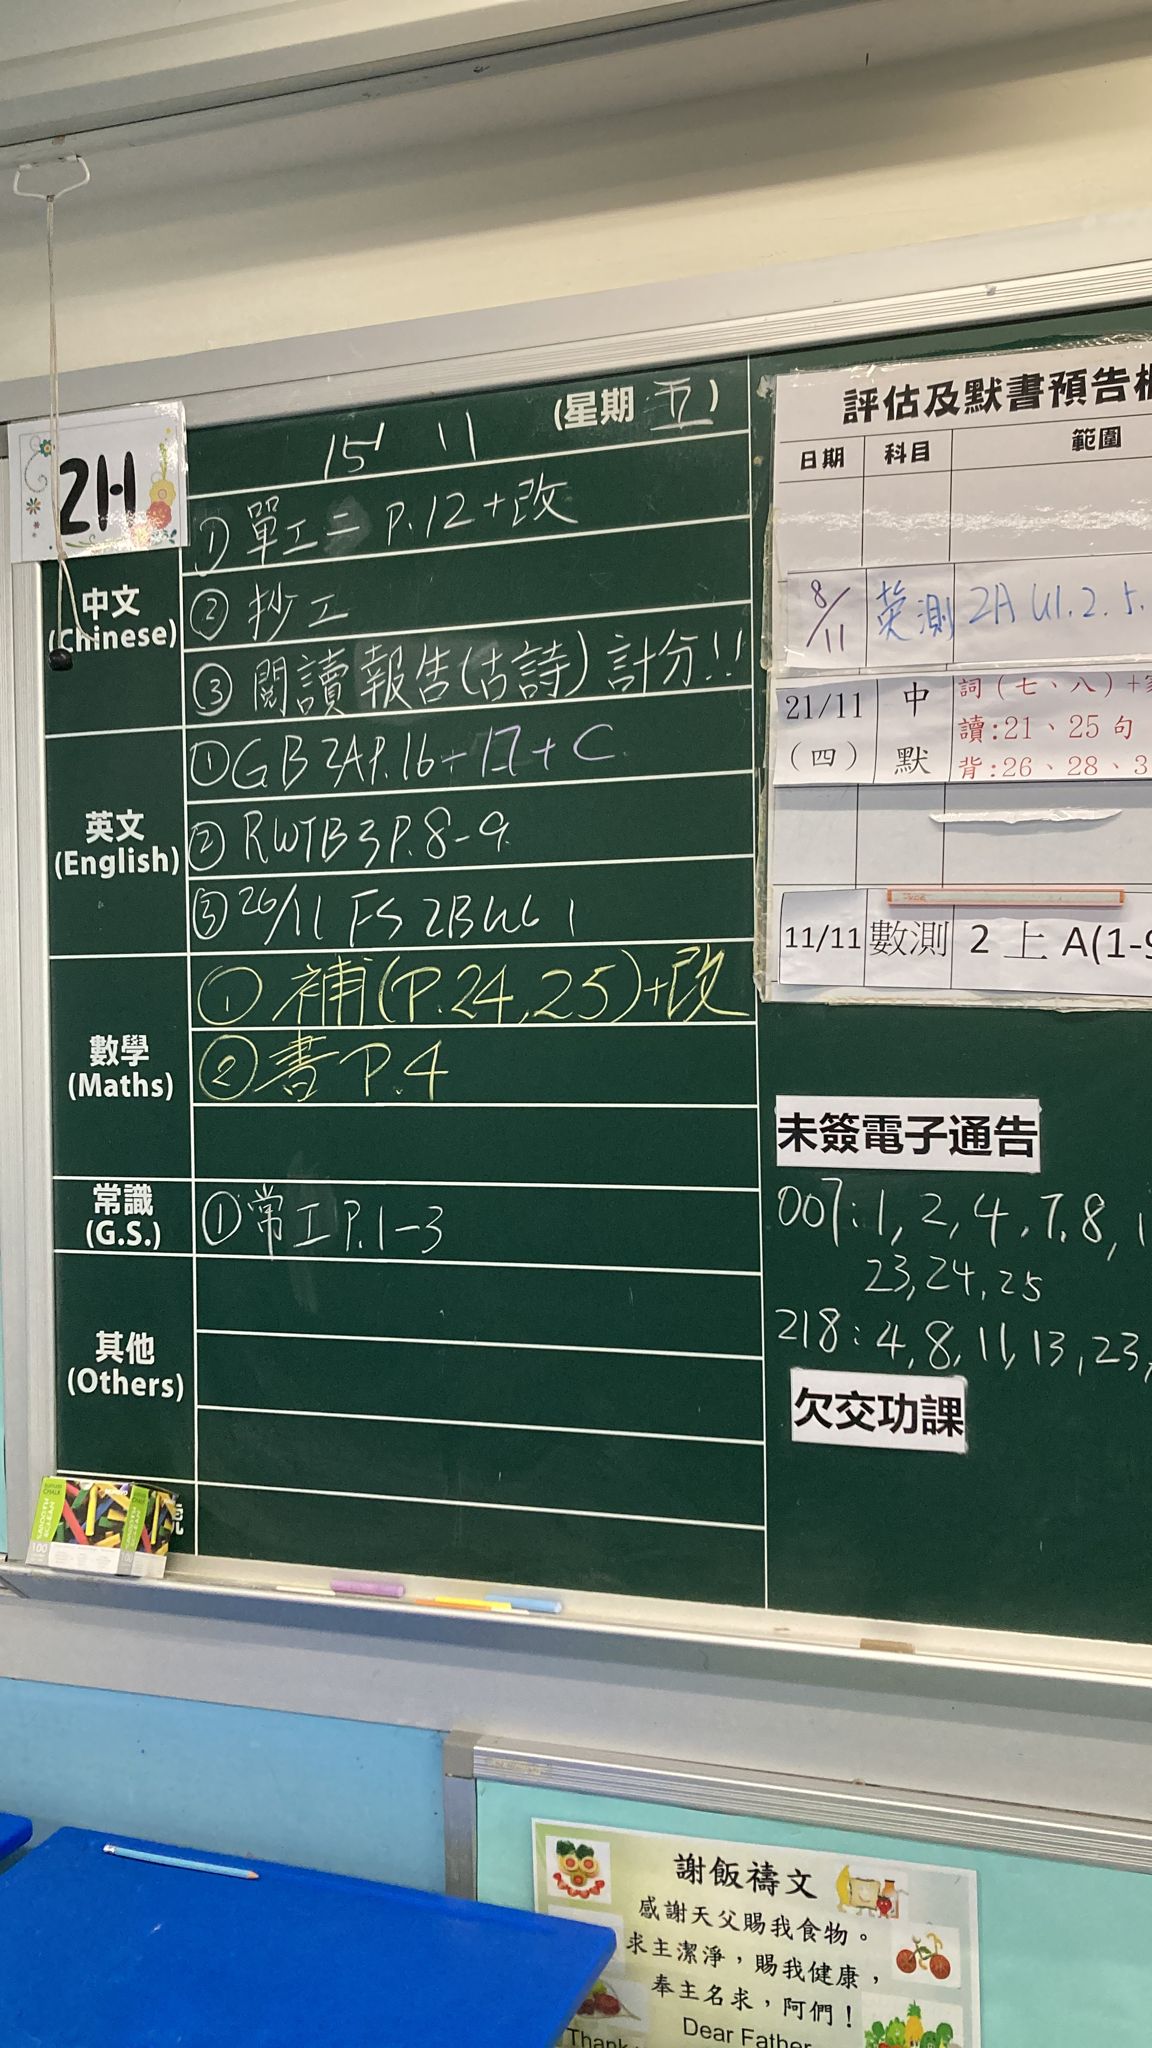 2H
15 11 (星期 五)
中文
(Chinese)
① 單工二 P.12+改
② 抄工
③ 閱讀報告(古詩)計分!!
英文
(English)
① GB 2A P.16-17 + C
② RWTB 3 P.8-9.
③ 26/11 FS 2B U6 1
數學
(Maths)
① 補(P.24,25)+改
② 書 P.4
常識
(G.S.)
① 常工 P.1-3
其他
(Others)
評估及默書預告
日期 科目 範圍
8/11 英測 2A U1.2.5.
21/11 (四) 中默 詞(七、八)+
讀:21、25句
背:26、28、3
11/11 數測 2上A(1-9
未簽電子通告
007:1, 2, 4, 7, 8, 1
23, 24, 25
218: 4, 8, 11, 13, 23,
欠交功課
100
謝飯禱文
感謝天父賜我食物。
求主潔淨，賜我健康，
奉主名求，阿們！
Thank
Dear Father